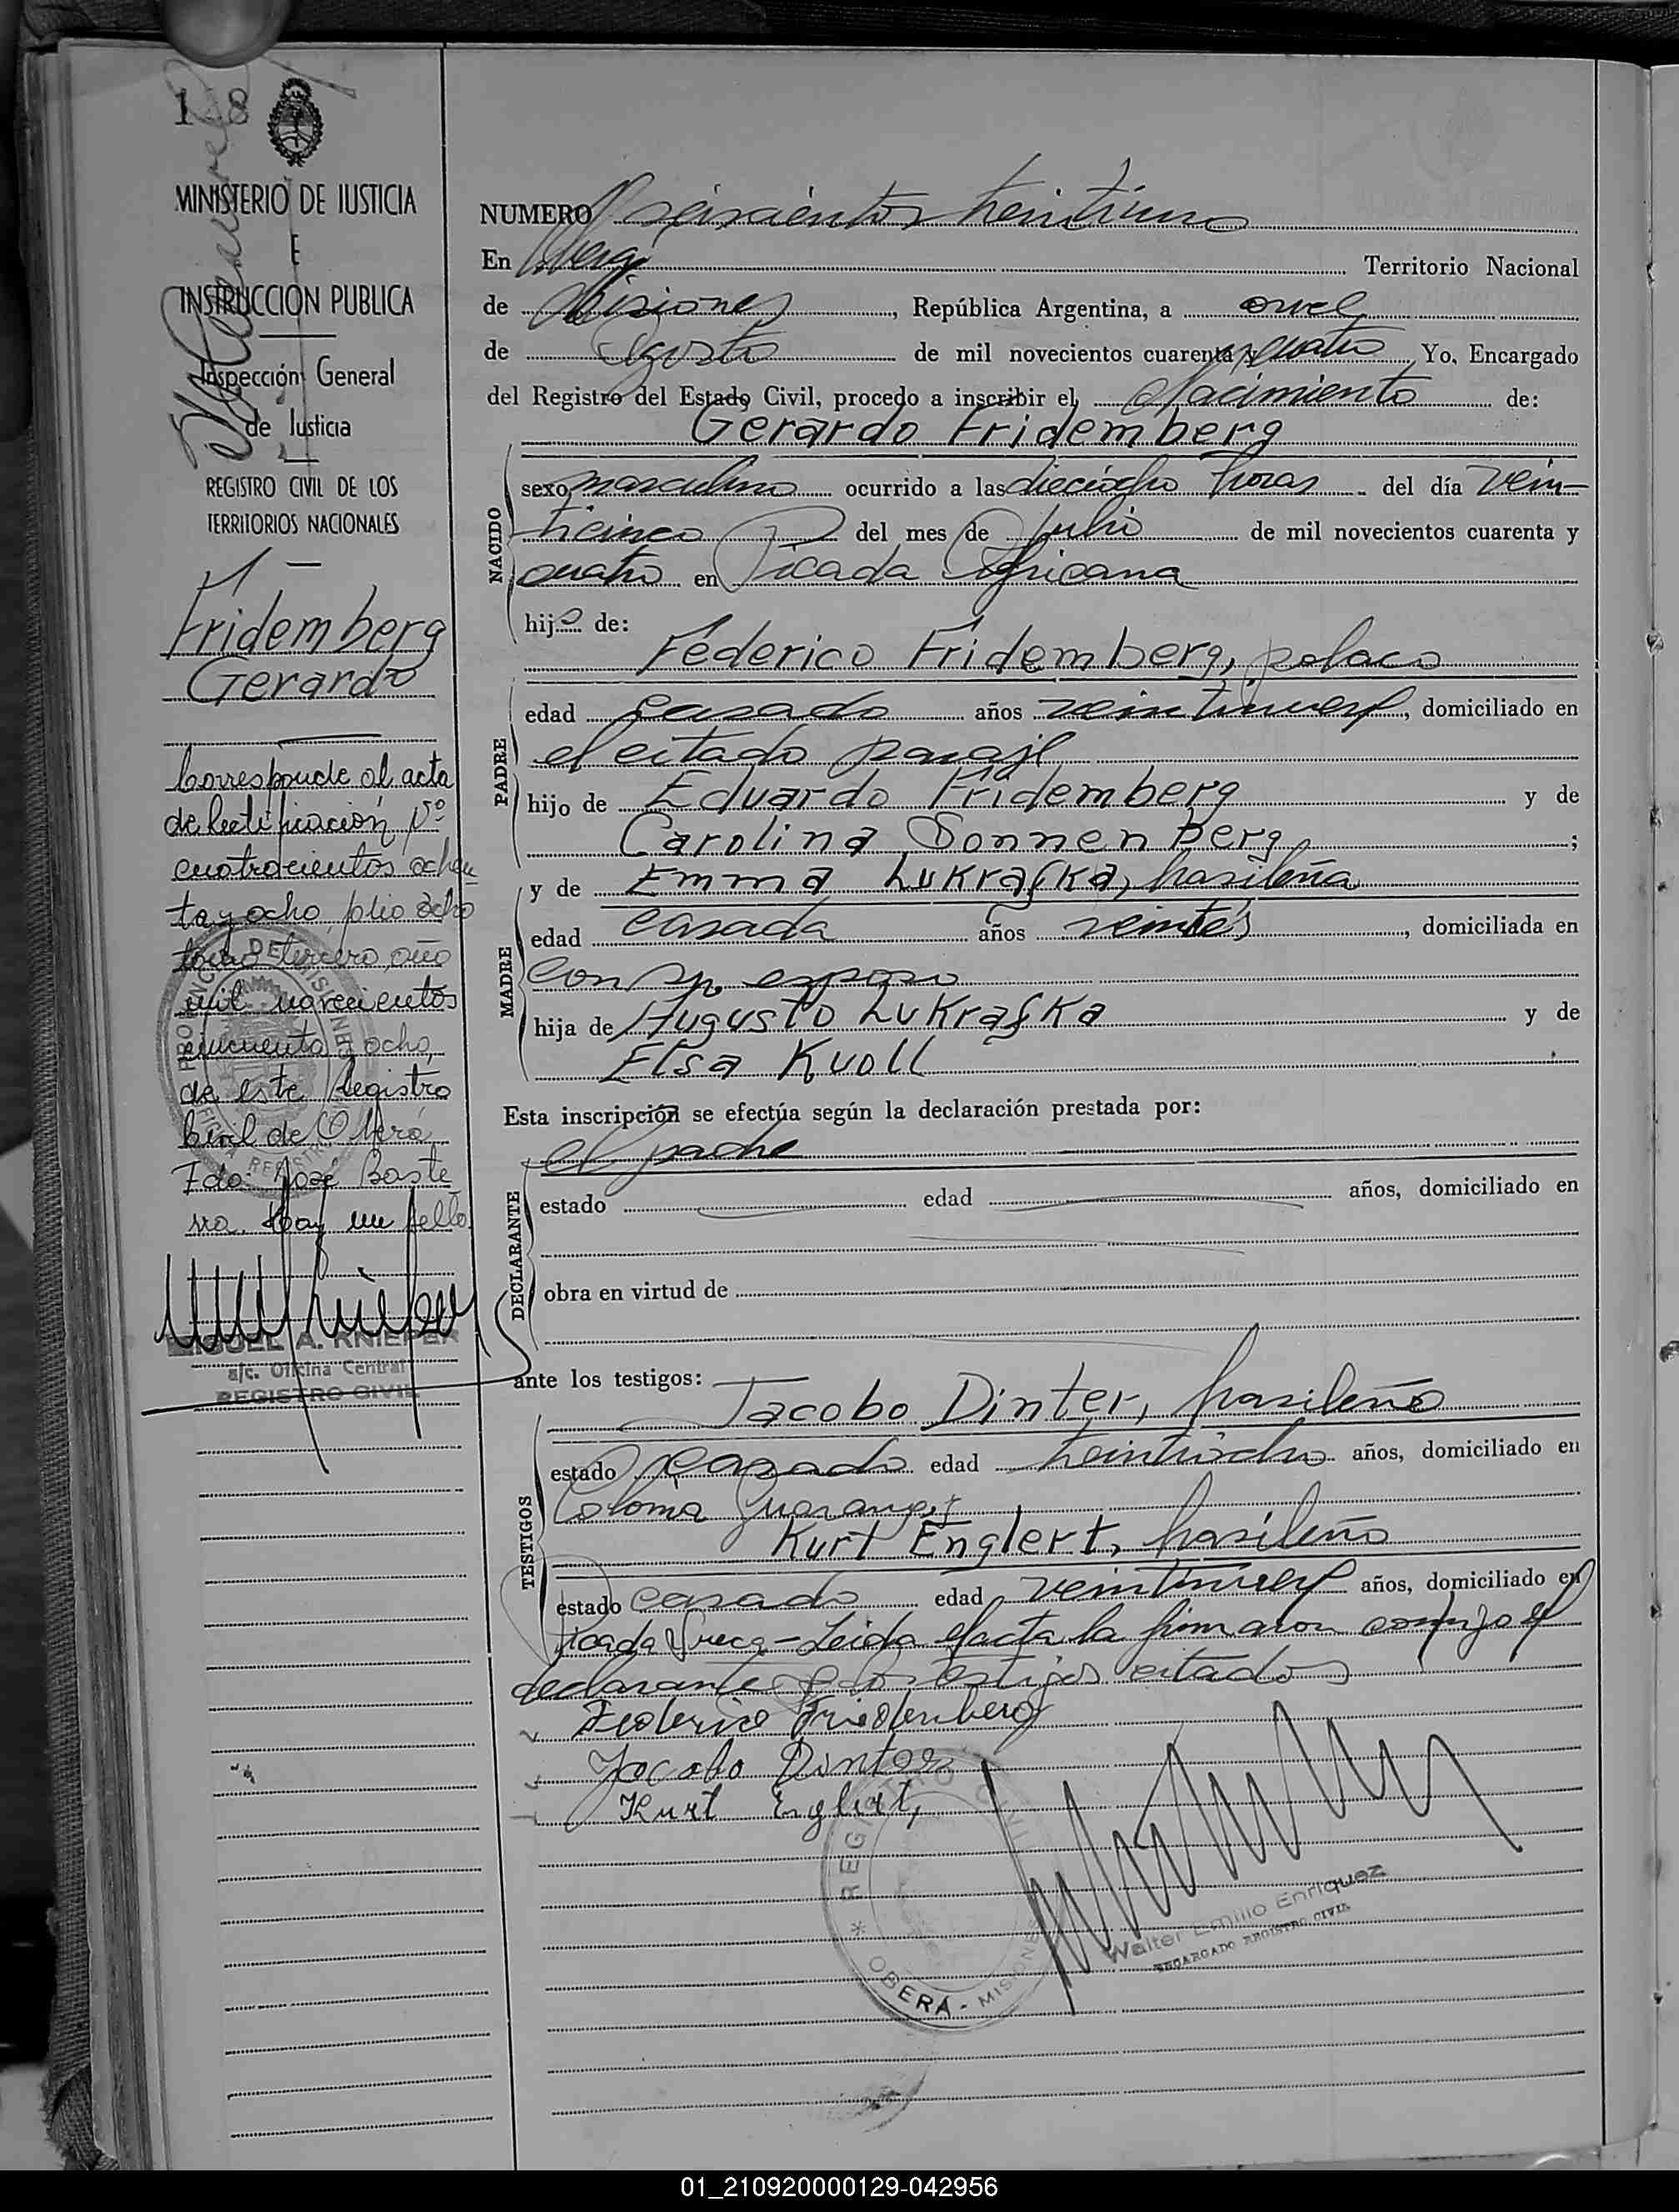 1 8
MINISTERIO DE JUSTICIA
E
INSTRUCCION PUBLICA
Inspección General
de Justicia
REGISTRO CIVIL DE LOS
TERRITORIOS NACIONALES
Fridemberg
Gerardo
Corresponde al acta
de Rectificación Nº
cuatrocientos ochen
ta y ocho, folio ocho
tomo tercero, año
mil novecientos
cincuenta y ocho,
de este Registro
Civil de Oberá
Fdo: José Baste
rra. Hay un sello.
MIGUEL A. KNIEPER
a/c. Oficina Central
REGISTRO CIVIL
NUMERO seiscientos treintiuno
En Oberá Territorio Nacional
de Misiones, República Argentina, a once
de Agosto de mil novecientos cuarenta y cuatro Yo, Encargado
del Registro del Estado Civil, procedo a inscribir el Nacimiento de:
Gerardo Fridemberg
NACIDO
sexo masculino ocurrido a las dieciocho horas del día vein-
ticinco del mes de julio de mil novecientos cuarenta y
cuatro en Picada Africana
hijo de:
Féderico Fridemberg, polaco
PADRE
edad casado años veintinueve, domiciliado en
el citado paraje
hijo de Eduardo Fridemberg y de
Carolina Sonnenberg;
MADRE
y de Emma Lukrafka, brasileña
edad casada años , domiciliada en
con su esposo
hija de Augusto Lukrafka y de
Elsa Kuoll
Esta inscripción se efectúa según la declaración prestada por:
el padre
DECLARANTE
estado edad años, domiciliado en
obra en virtud de
ante los testigos:
Jacobo Dinter, brasileño
TESTIGOS
estado casado edad treintiocho años, domiciliado en
Colonia
Kurt Englert, brasileño
estado casado edad veintinueve años, domiciliado en
Picada - Leida el acta la firmaron conmigo el
declarante y los testigos citados
Federico Friedenberg
Jacobo Dinter
Kurt Englert,
REGISTRO CIVIL
OBERA - MISIONES
Walter Emilio Enriquez
ENCARGADO REGISTRO CIVIL
01_210920000129-042956